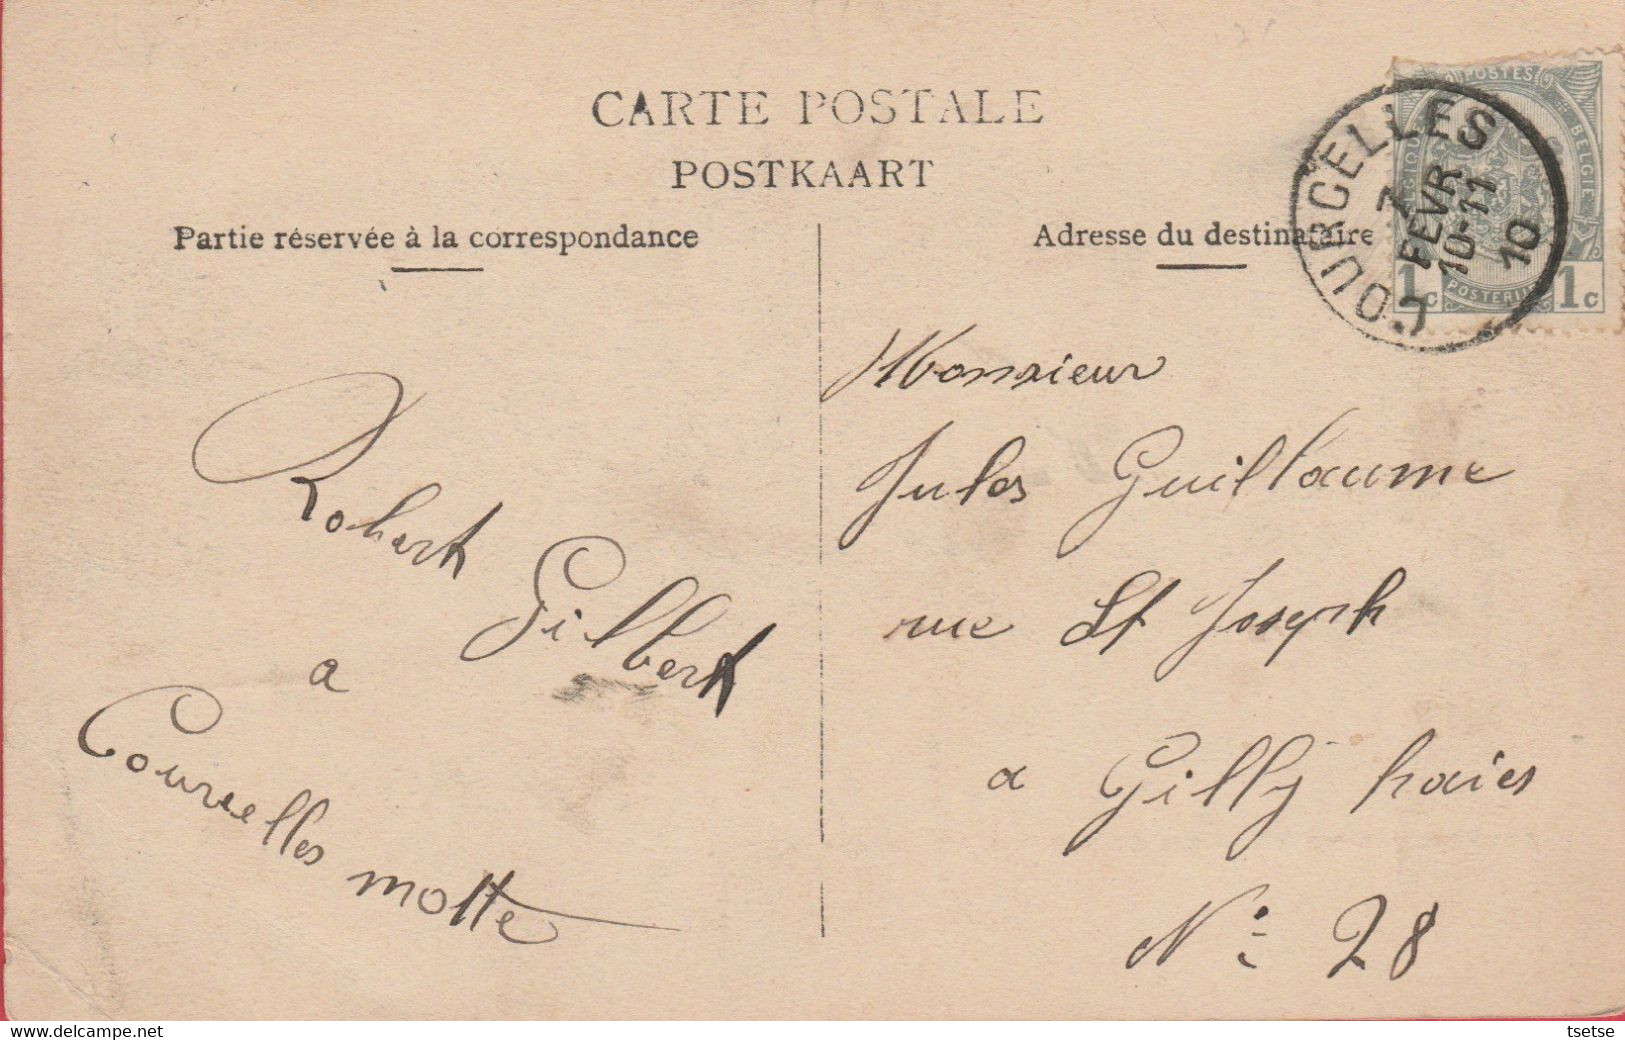 CARTE POSTALE
POSTKAART
Partie réservée à la correspondance
Adresse du destinataire
POSTES
BELGIQUE
BELGIE
POSTERIJEN
1c 1c
COURCELLES
7
FEVR
10-11
10
Robert
Gilbert
a
Courcelles motte
Monsieur
Jules Guillaume
rue St Joseph
a Gilly haies
N° 28
www.delcampe.net
tsetse